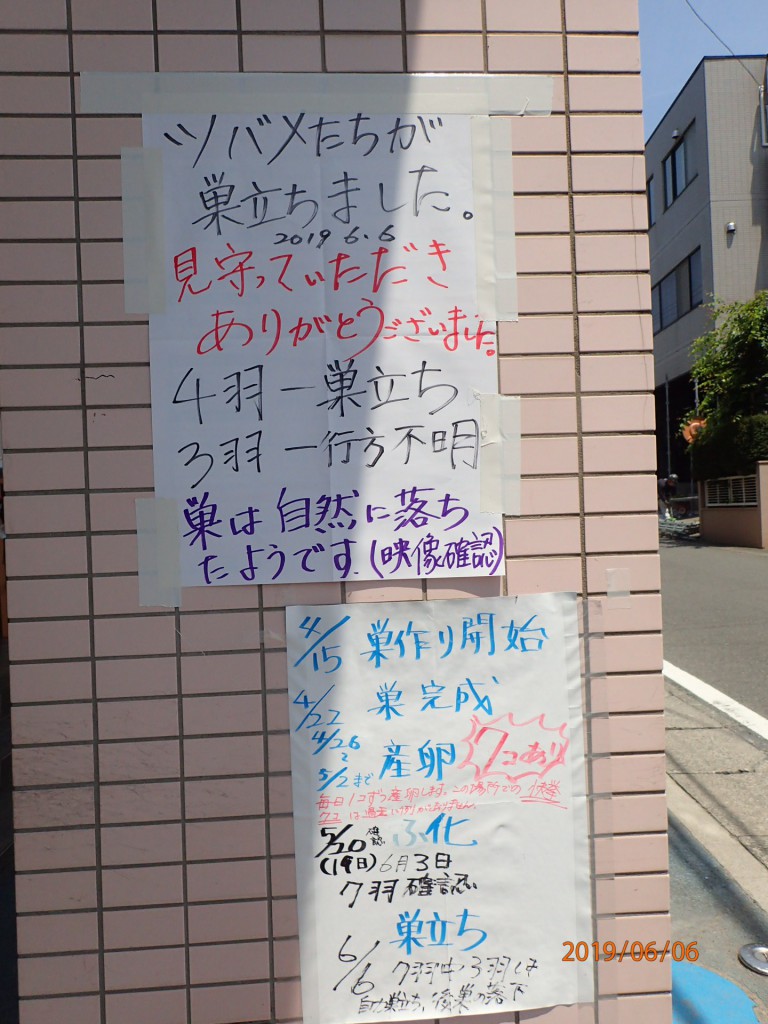 ツバメたちが
巣立ちました。
2019 6.6
見守っていただき
ありがとうございました。
4羽ー巣立ち
3羽ー行方不明
巣は自然に落ち
たようです.(映像確認)
4/15 巣作り開始
4/22 巣完成
4/26
〜
5/2まで 産卵 7コあり
毎日1コずつ産卵します。この場所での
7コは過去に例がありません。
5/20 確認 ふ化
(19日)6月3日
7羽確認
巣立ち
6/6 7羽中3羽は
自力巣立ち、後巣の落下
2019/06/06